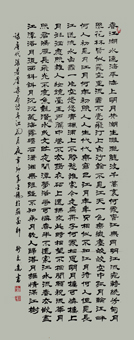 春江潮水連海平海上明月共潮生灩灩隨波千萬里何處春江無月明江流宛轉繞芳甸月
照花林皆似霰空裏流霜不覺飛汀上白沙看不見江天一色無纖塵皎皎空中孤月輪江畔
何人初見月江月何年初照人人生代代無窮已江月年年望相似不知江月待何人但見長
江送流水白雲一片去悠悠青楓浦上不勝愁誰家今夜扁舟子何處相思明月樓可憐樓上
月徘徊應照離人妝鏡臺玉戶簾中卷不去搗衣砧上拂還來此時相望不相聞願逐月華流
照君鴻雁長飛光不度魚龍潛躍水成文昨夜閒潭夢落花可憐春半不還家江水流春去欲盡
江潭落月復西斜斜月沉沉藏海霧碣石瀟湘無限路不知乘月幾人歸落月搖情滿江樹